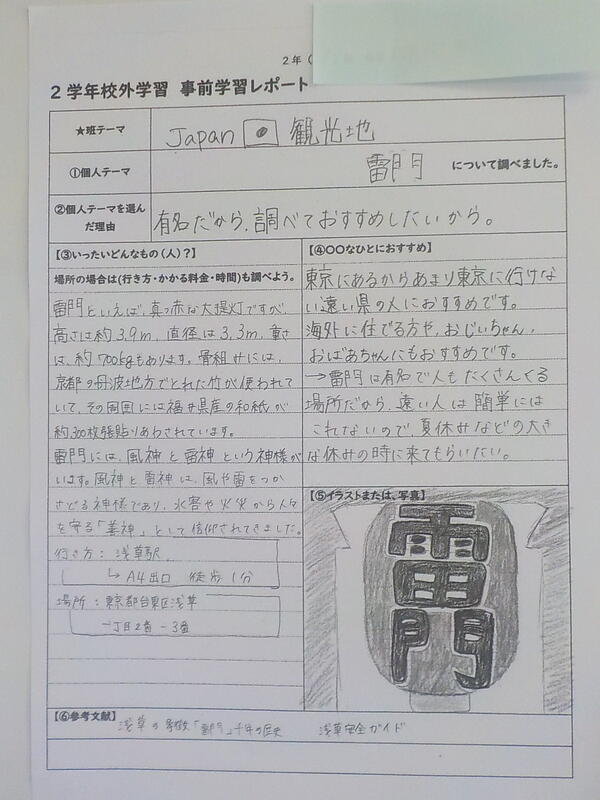 2年(
2学年校外学習 事前学習レポート
★班テーマ
Japan 観光地
①個人テーマ
雷門 について調べました。
②個人テーマを選んだ理由
有名だから、調べておすすめしたいから。
【③いったいどんなもの(人)?】
場所の場合は(行き方・かかる料金・時間)も調べよう。
雷門といえば、真っ赤な大提灯ですが、
高さは約3.9m、直径は3.3m、重さ
は、約700kgもあります。骨組みには、
京都の丹波地方でとれた竹が使われて
いて、その周囲には福井県産の和紙が
約300枚張貼りあわされています。
雷門には、風神と雷神という神様が
います。風神と雷神は、風や雷をつか
さどる神様であり、水害や火災から人々
を守る「善神」として信仰されてきました。
行き方:浅草駅
↳A4出口 徒歩1分
場所:東京都台東区浅草
一丁目2番-3番
【④〇〇なひとにおすすめ】
東京にあるからあまり東京に行けな
い遠い県の人におすすめです。
海外に住でる方や、おじいちゃん、
おばあちゃんにもおすすめです。
→雷門は有名で人もたくさんくる
場所だから、遠い人は簡単には
これないので、夏休みなどの大き
な休みの時に来てもらいたい。
【⑤イラストまたは、写真】
雷門
【⑥参考文献】
浅草の象徴「雷門」千年の歴史 浅草安全ガイド